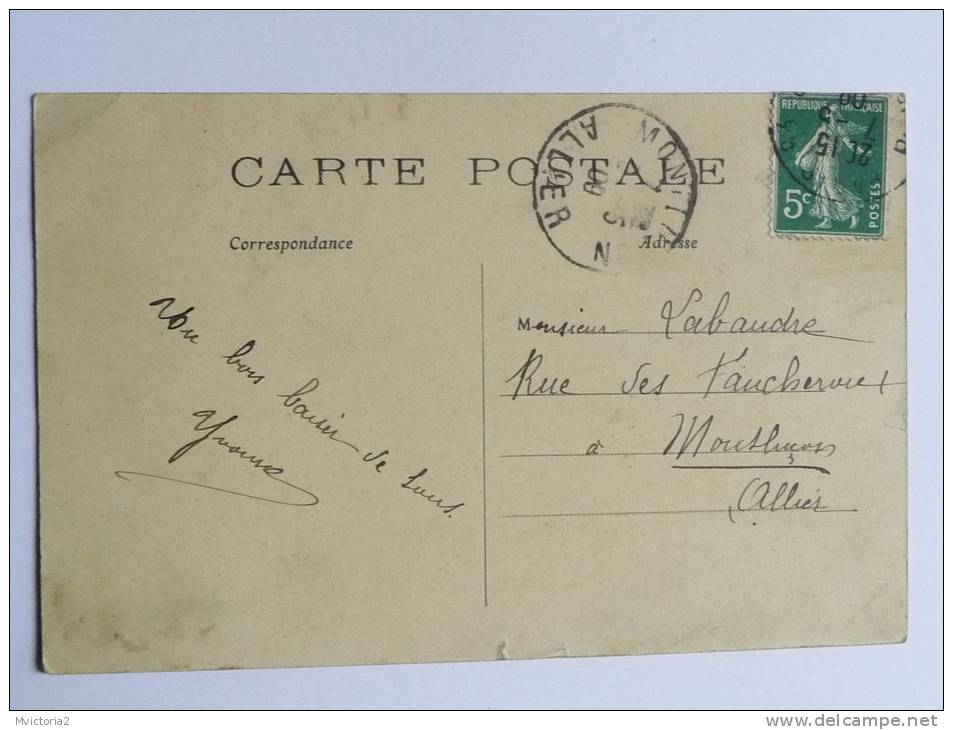 CARTE POSTALE
Correspondance
Adresse
REPUBLIQUE FRANÇAISE
5c
POSTES
ALLIER
09
Un bon baiser de tous.
Yvonne
Monsieur Labaudre
Rue des Faucheroux
à Montluçon
(Allier
Mvictoria2
delcampe.net